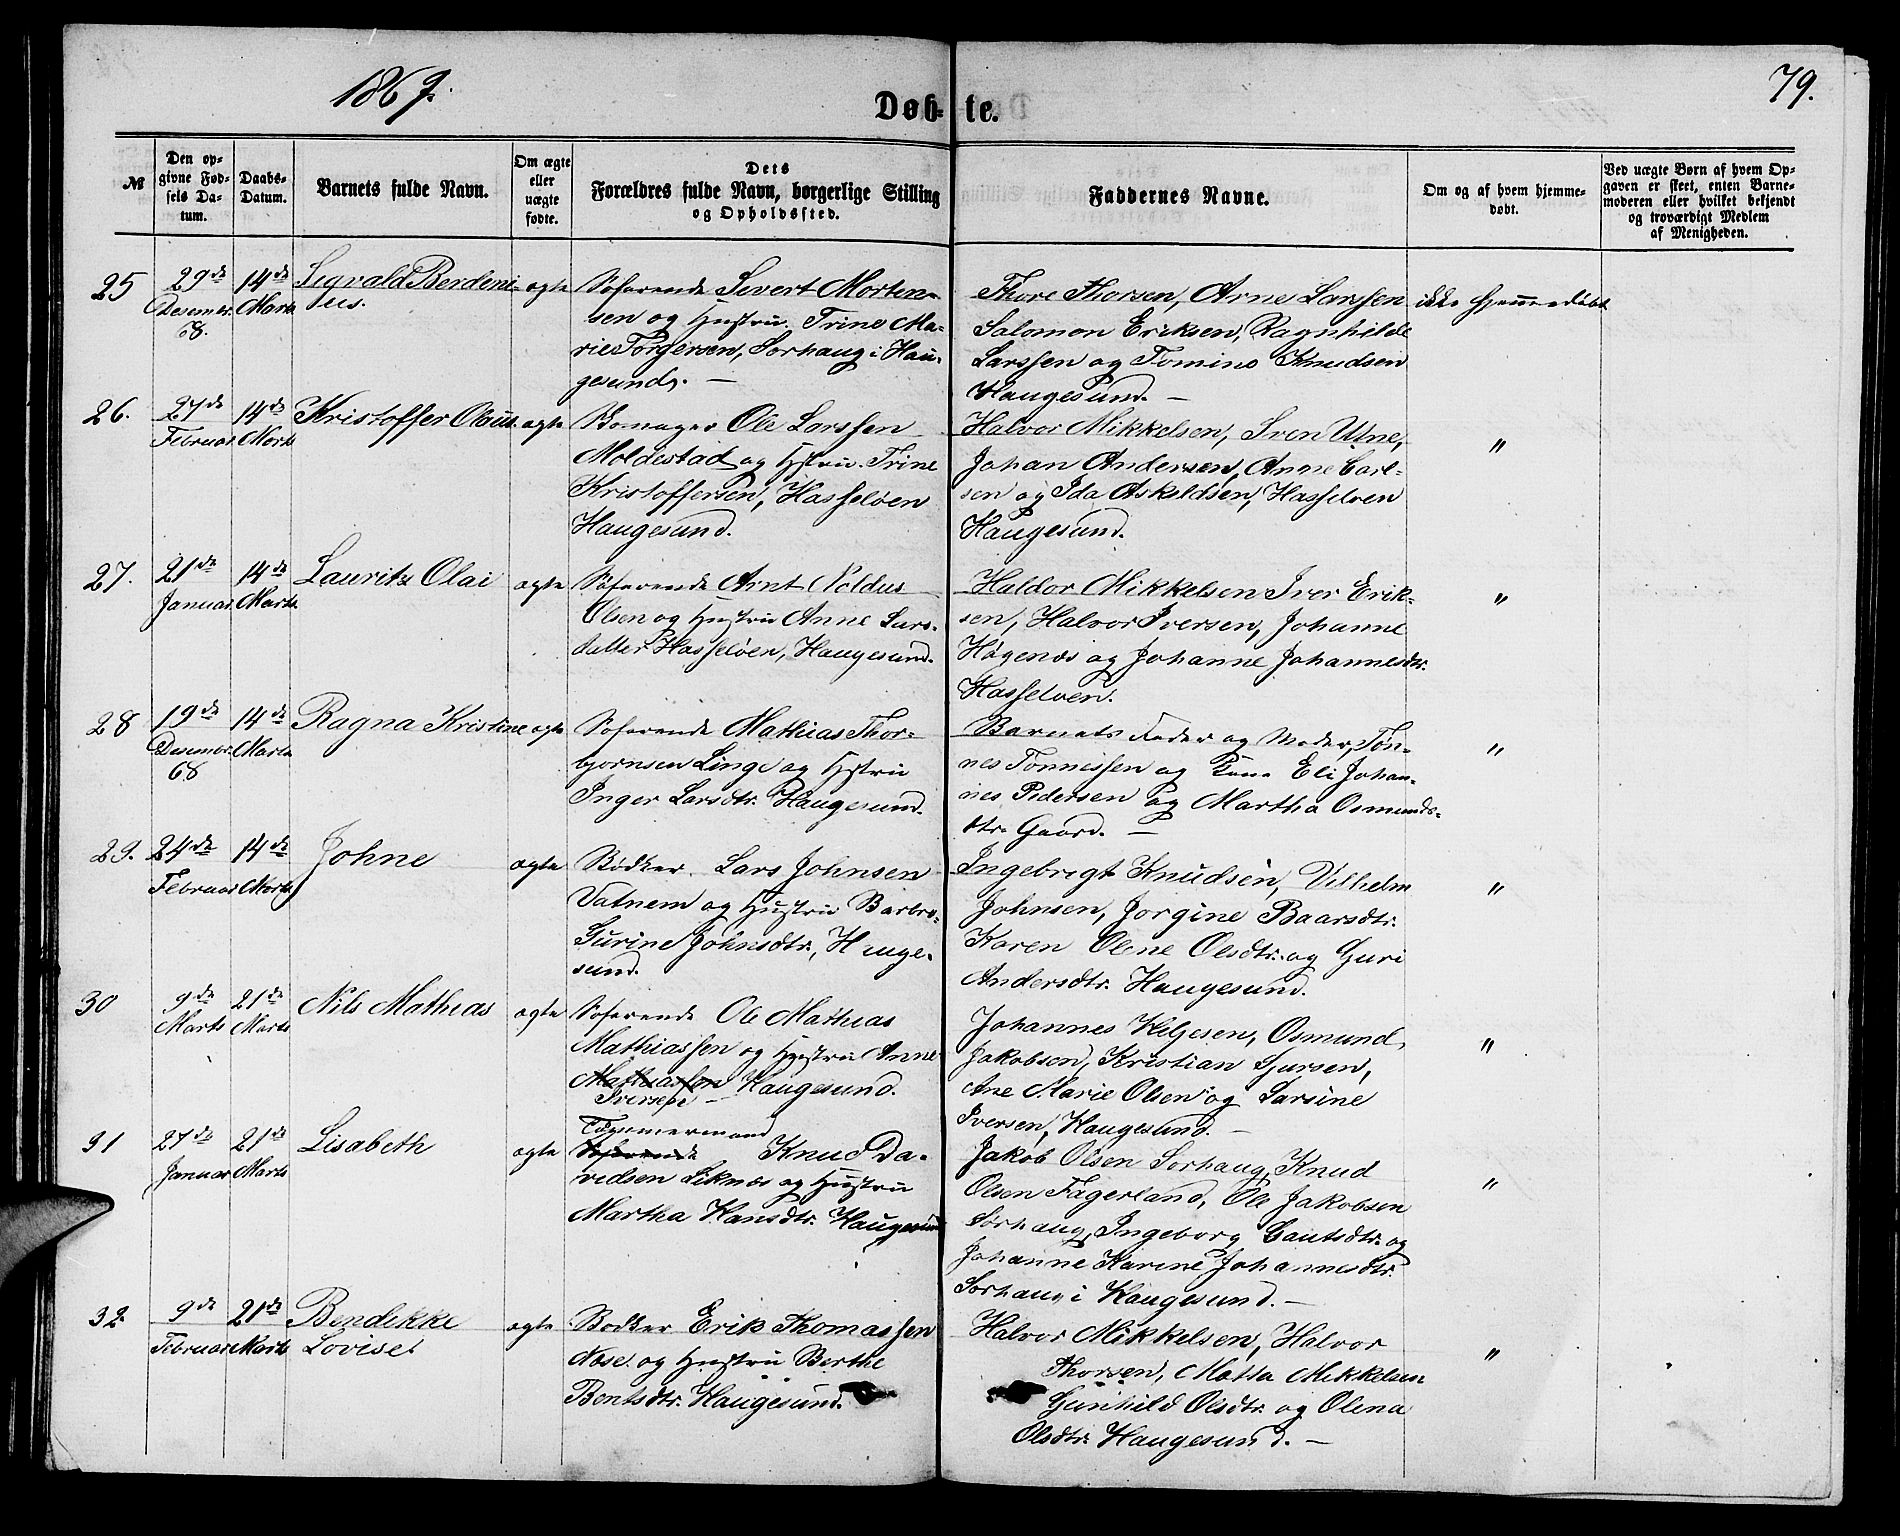 1869.
79.
Døbte.
№
Den opgivne Fødsels Datum.
Daabs-Datum.
Barnets fulde Navn.
Om ægte eller uægte fødte.
Dets Forældres fulde Navn, borgerlige Stilling og Opholdssted.
Faddernes Navne.
Om og af hvem hjemmedøbt.
Ved uægte Børn af hvem Opgaven er skeet, enten Barnemoderen eller hvilket bekjendt og troværdigt Medlem af Menigheden.
25
29de Desemer. 68.
14de Marts
Sigvald Berdeni-
us.
ægte
Søfarende Sivert Morten-
sen og Hustru Trine Ma-
rie Torgersen, Sørhaug i Hau-
gesund. —
Thore Thorsen, Arne Larssen
Salomon Eriksen, Ragnhilde
Larssen og Tomine Knudsen
Haugesund. —
ikke hjemmedøbt
26.
27de Februar
14de Marts
Kristoffer Olaus.
ægte
Ole Larssen
Moldestad og Hstru Trine
Kristoffersen, Hasseløen
Haugesund.
Halvor Mikkelsen, Sven Utne,
Johan Andersen, Anne Carl-
sen og Ida Askeldsen, Hasseløen
Haugesund.
"
27.
21de Januar
14de Marts
Lauritz Olai
ægte
Søfarende Arnt Noldus
Olsen og Hustru Anne Lars-
datter Hasseløen, Haugesund.
Haldor Mikkelsen Iver Erik-
sen, Halvor Iversen, Johanne
Høgenæs og Johanne Johannesdtr.
Hasseløen.
"
28
19de Desemer. 68
14de Marts
Ragna Kristine
ægte
Søfarende Mathias Thor-
bjørnsen Linge og Hstru
Inger Larsdtr. Haugesund.
Barnets Fader og Moder, Tøn-
nes Tønnessen og Eli Johan-
nes Pedersen og Martha Osmunds-
dtr. Gaard. —
"
29.
24de Februar
14de Marts
Johne
ægte
Bødker Lars Johnsen
Vatnem og Hustru Barbro-
Gurine Johnsdtr., Hauge-
sund.
Ingebregt Knudsen, Vilhelm
Johnsen, Jorgine Baarsdtr.
Karen Olene Olsdtr. og Guri
Andersdtr. Haugesund.
"
30
9de Marts
21de Marts
Nils Mathias
ægte
Søfarende Ole Mathias
Mathiassen og Hustru Anne
Mathiassen Haugesund.
Iversen —
Johannes Helgesen, Osmund
Jakobsen, Kristian Sjursen,
Ane Marie Olsen og Larsine
Iversen, Haugesund. —
"
31
27de Januar
21de Marts
Lisabeth
ægte
Tømmermand
Søfarende Knud Da-
vidsen Leknæs og Hustru
Martha Hansdtr. Haugesund
Jakob Olsen Sørhaug, Knud
Olsen Fagerland, Ole Jakobsen
Sørhaug, Ingeborg Gautsdtr. og
Johanne Karine Johannesdtr.
Sørhaug i Haugesund. —
"
32.
9de Februar
21de Marts
Bendikke
Lovise.
ægte
Bødker Erik Thomassen
Næse og Hustru Berthe
Bentsdtr. Haugesund.
Halvor Mikkelsen, Halvor
Thorsen, Matta Mikkelsen
Gunhild Olsdtr. og Olena
Olsdtr. Haugesund. —
"